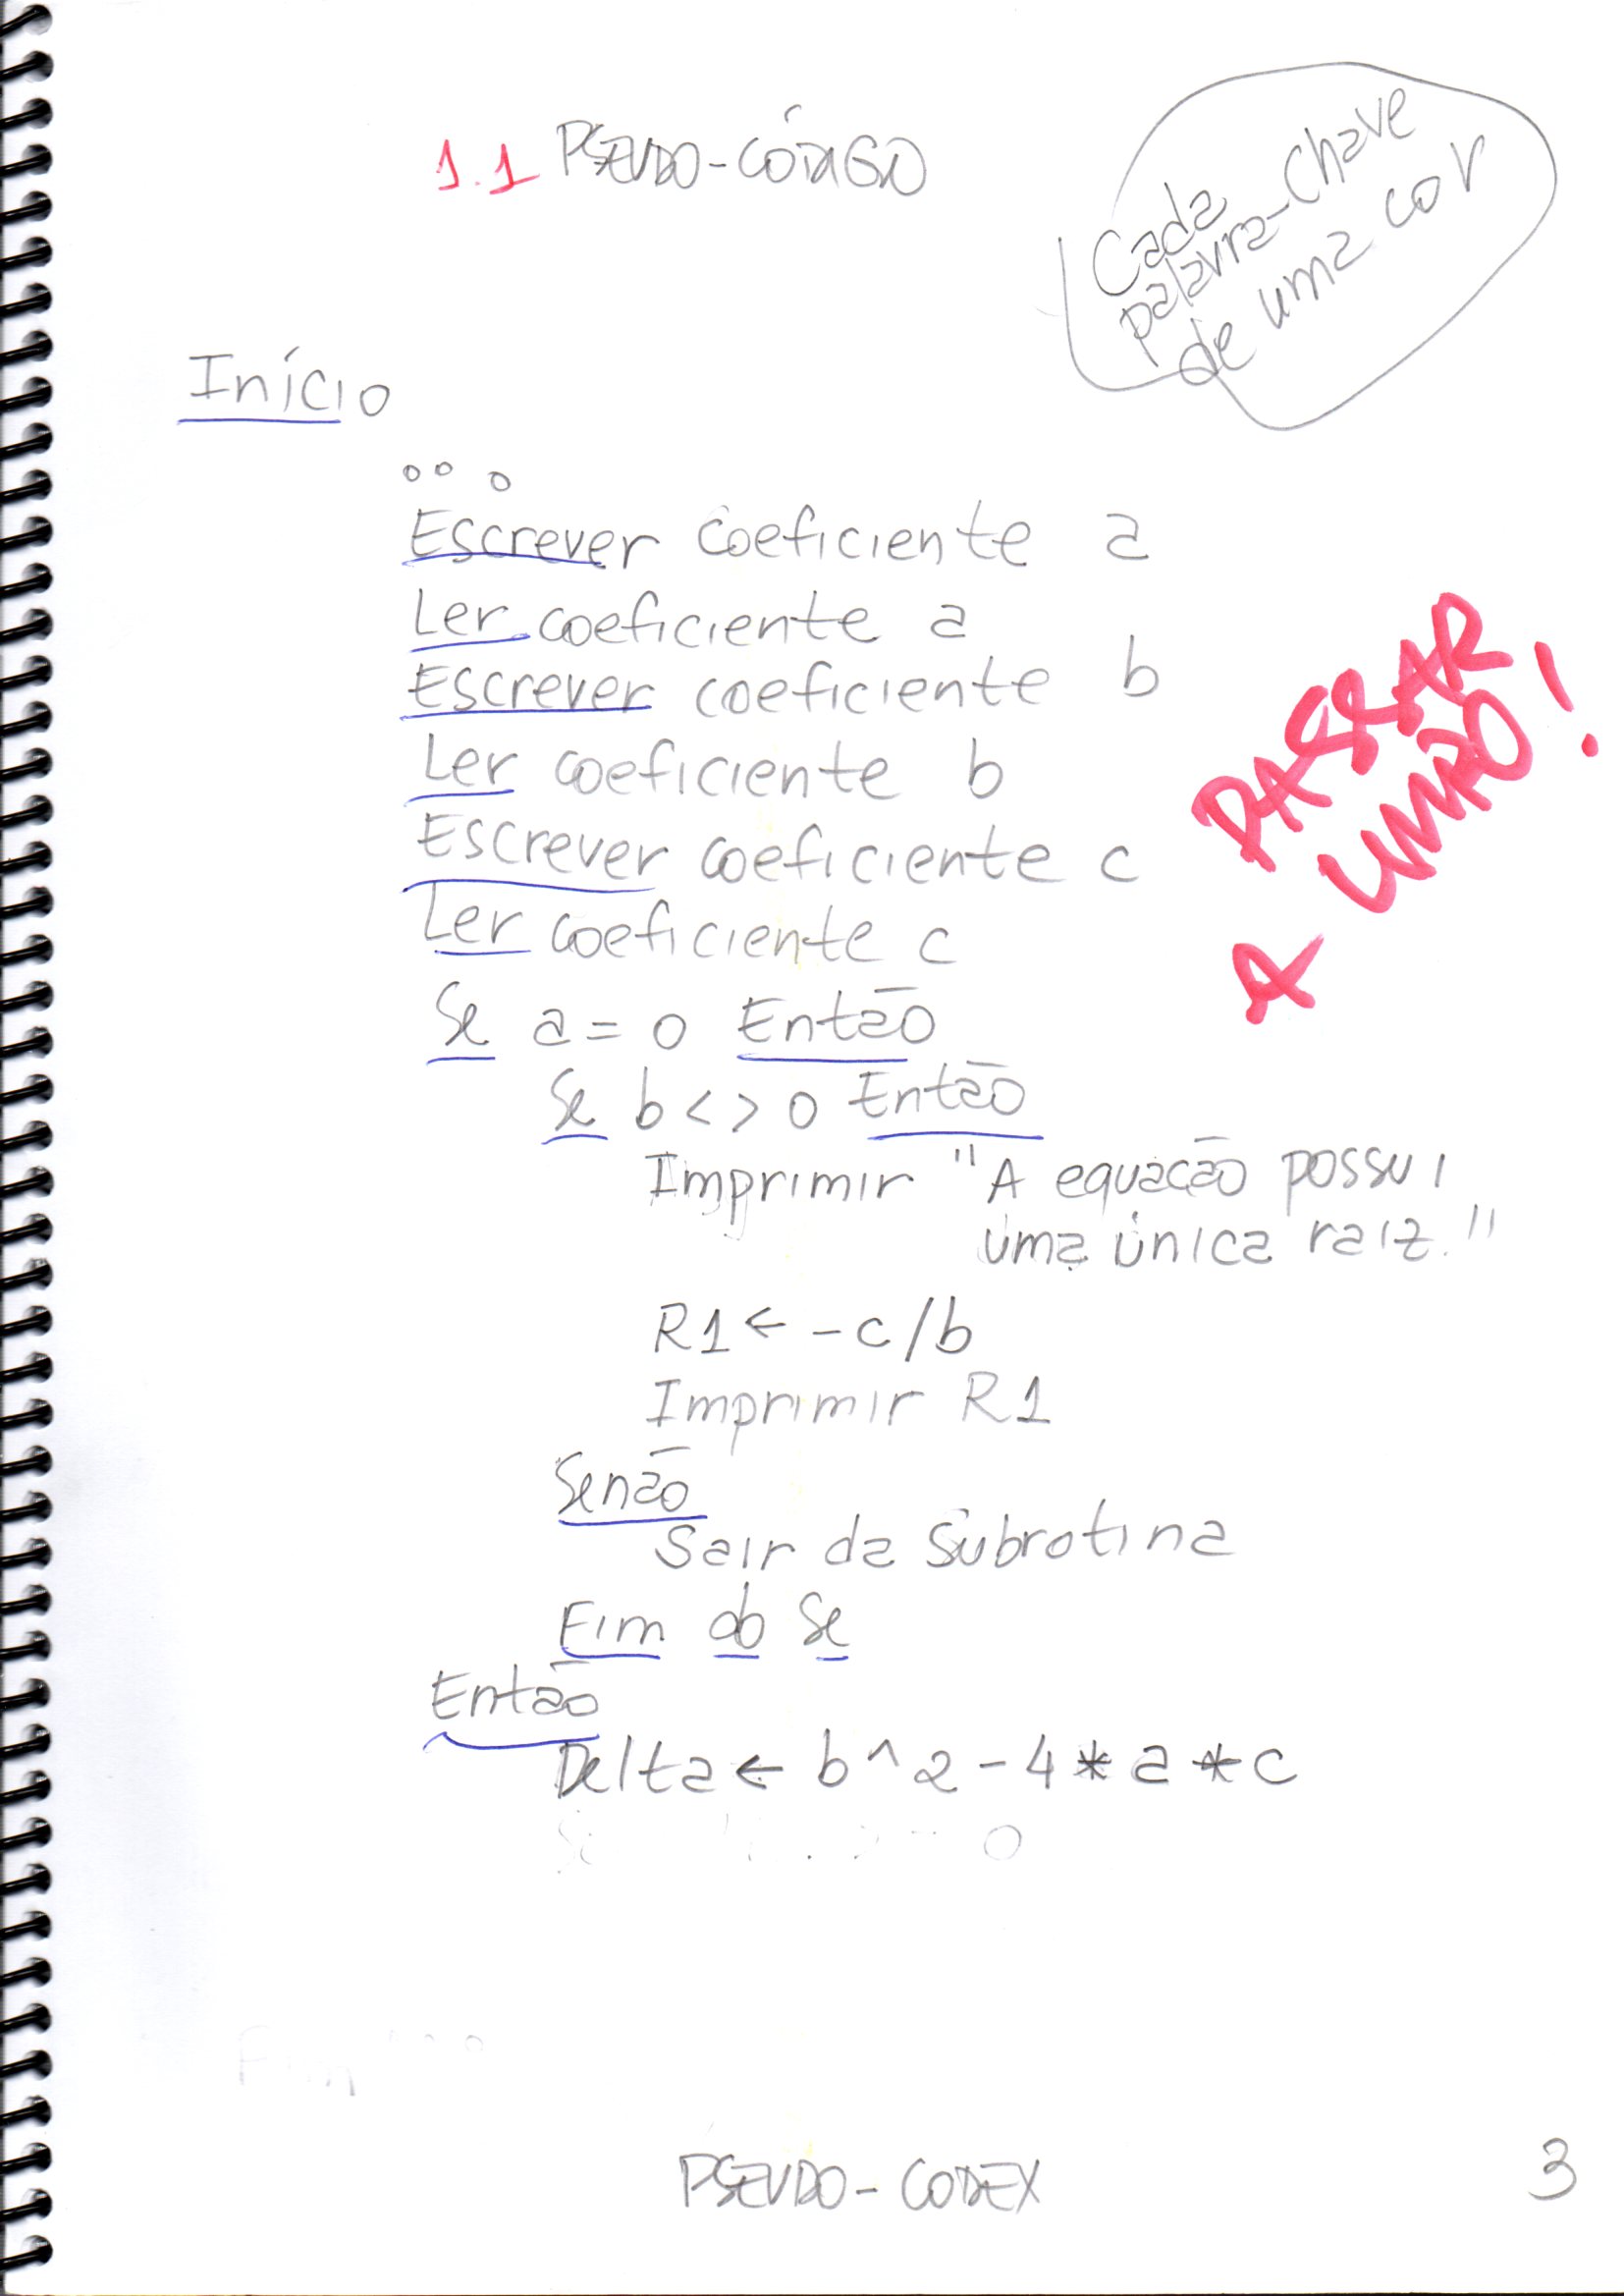 1.1 PSEUDO-CÓDIGO
Cada
palavra-chave
de uma cor
Início
Escrever coeficiente a
Ler coeficiente a
Escrever coeficiente b
Ler coeficiente b
PASSAR
A LIMPO!
Escrever coeficiente c
Ler coeficiente c
Se a = 0 Então
Se b <> 0 Então
Imprimir "A equacão possui
uma única raiz."
R1 ← -c/b
Imprimir R1
Senão
Sair da Subrotina
Fim do Se
Então
Delta ← b^2-4*a*c
PSEUDO-CODEX
3